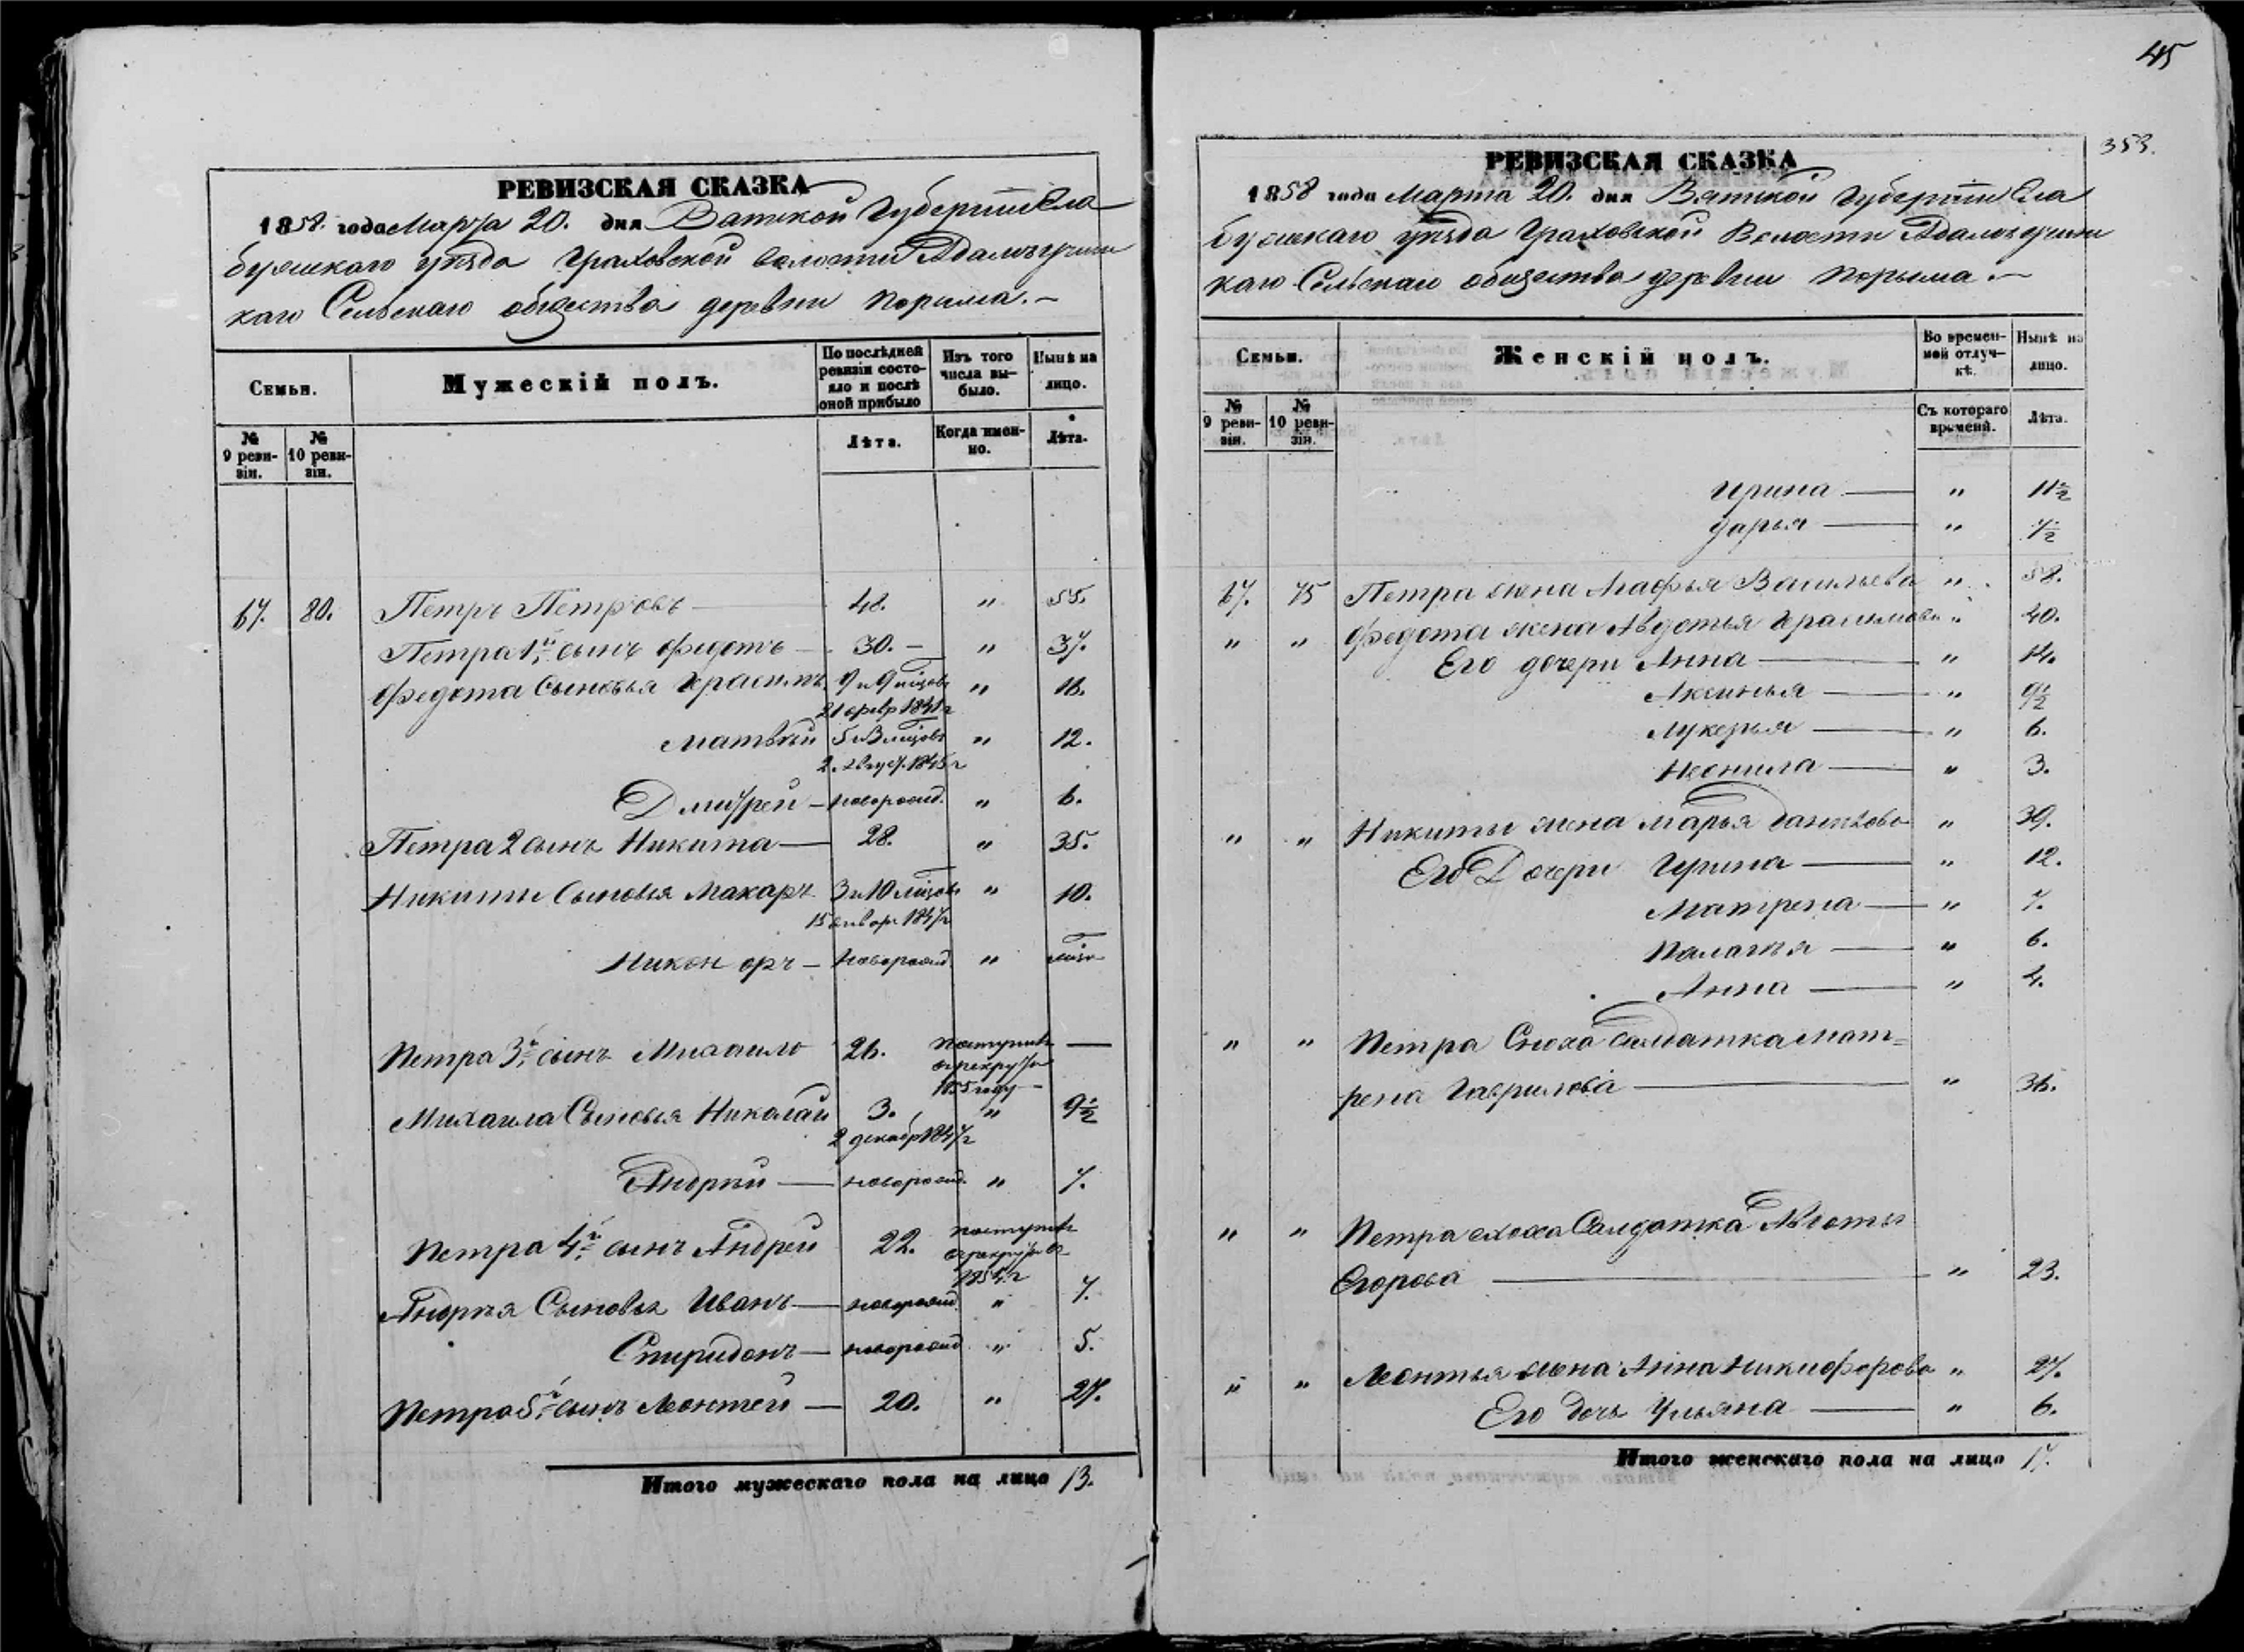 РЕВИЗСКАЯ СКАЗКА
1858. года Марта 20. дня Вятской Губернии Ела
бужскаго уѣзда Граховской волости Адамъучин
каго Сельскаго общества деревни Порыма.–
Семьи.
Мужескій полъ.
По послѣдней ревизіи состояло и послѣ оной прибыло
Изъ того числа выбыло.
Нынѣ на лицо.
№ 9 ревизіи.
№ 10 ревизіи.
Лѣта.
Когда именно.
Лѣта.
67. 80. Петръ Петровъ — 48. " 55.
Петра 1й сынъ Федотъ — 30.– " 37.
Федота Сыновья Герасимъ 9 и 9 мцовъ " 16.
21 февр 1841 г
Матвѣй 5 и 3 мцовъ " 12.
2. август. 1845 г
Дмитрей – новорожд. " 6.
Петра 2 сынъ Никита — 28. " 35.
Никиты Сыновья Макаръ 3 и 10 мцовъ " 10.
15 январ. 1847 г
Никоноръ – новорожд. "
Петра 3й сынъ Михаило 26. поступилъ —
в рекруты
1855 году –
Михаила Сыновья Николай 3. " 9½
2 декабр 1847 г
Андрѣй — новорожд. " 7.
Петра 4й сынъ Андрей 22. поступилъ
в рекруты въ
Андрѣя Сыновья Иванъ — новорожд. " 7.
Спиридонъ — новорожд " 5.
Петра 5й сынъ Леонтей — 20. " 27.
Итого мужескаго пола на лицо 13.
45
353.
РЕВИЗСКАЯ СКАЗКА
1858 года Марта 20. дня Вятской Губернии Ела
бужскаго уѣзда Граховской Волости Адамъучин
каго Сельскаго общества деревни Порыма.–
Семьи.
Женскій полъ.
Во временной отлучкѣ.
Нынѣ на лицо.
№ 9 ревизіи.
№ 10 ревизіи.
Съ котораго времени.
Лѣта.
Ирина — " 11½
Дарья — "
67. 75 Петра жена Мафья Васильева " 58.
" " Федота жена Авдотья Герасимова " 40.
Его дочери Анна — " 14.
Аксинья — " 9½
Лукерья — " 6.
Неонила — " 3.
" " Никиты жена Марья Данилова " 39.
Его Дочери Ирина — " 12.
Матрена — " 7.
Палагья — " 6.
Анна — " 4.
" " Петра Сноха Салдатка Мат=
рена Гаврилова — " 36.
" " Петра сноха Салдатка Авдотья
Егорова — " 23.
" " Леонтья жена Анна Никифорова " 27.
Его дочь Ульяна — " 6.
Итого женскаго пола на лицо 17.